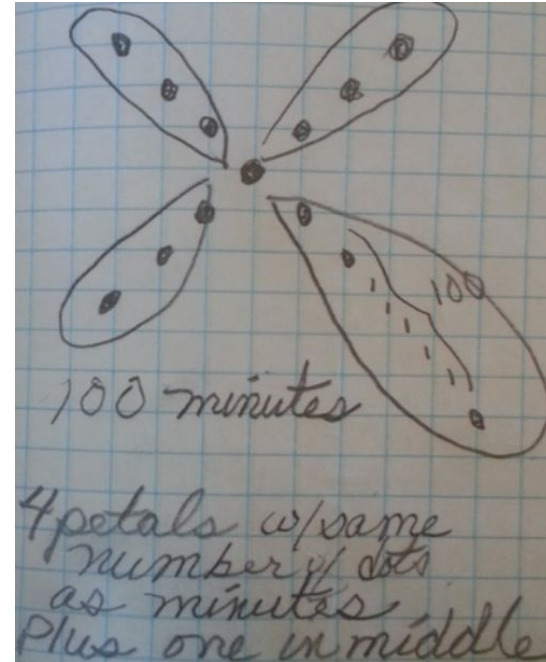 100
100 minutes
4 petals w/same
number of dots
as minutes
Plus one in middle